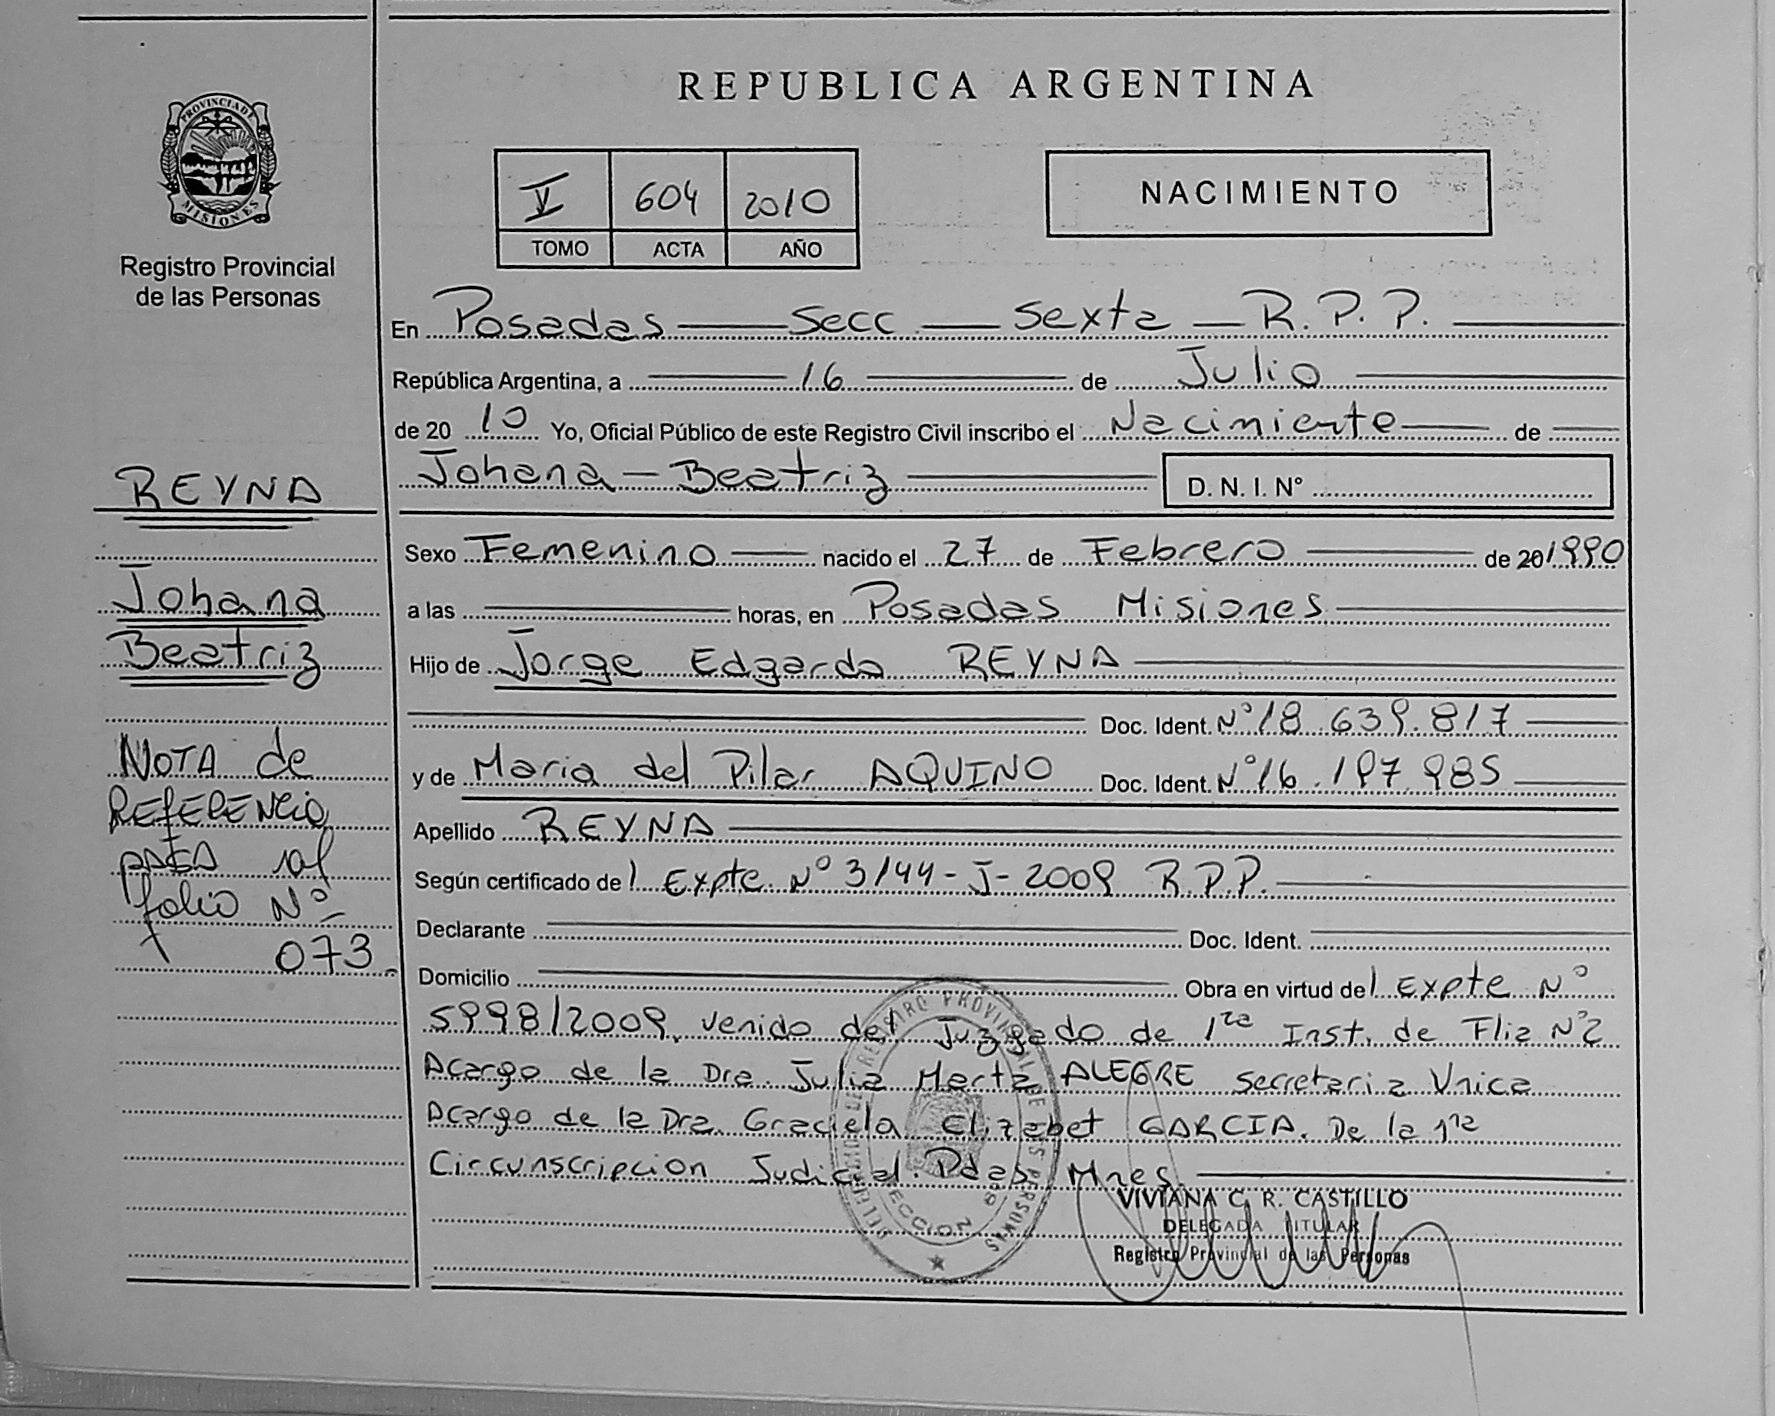 REPUBLICA ARGENTINA
PROVINCIA DE
MISIONES
Registro Provincial
de las Personas
V 604 2010
TOMO ACTA AÑO
NACIMIENTO
En Posadas Secc Sexta R.P.P.
República Argentina, a 16 de Julio
de 2010 Yo, Oficial Público de este Registro Civil inscribo el Nacimiento de
Johana - Beatriz D. N. I. Nº
Sexo Femenino nacido el 27 de Febrero de 20 1990
a las horas, en Posadas Misiones
Hijo de Jorge Edgardo REYNA
Doc. Ident. Nº 18.639.817
y de Maria del Pilar AQUINO Doc. Ident. Nº 16.197.985
Apellido REYNA
Según certificado de l Expte Nº 3144-J-2009 R.P.P.
Declarante Doc. Ident.
Domicilio Obra en virtud de l Expte Nº
5998/2009, venido del Juzgado de 1ra Inst. de Flia Nº2
Acargo de la Dra. Julia Marta ALEGRE Secretaria Unica
Acargo de la Dra. Graciela Elizabet GARCIA. De la 1ra
Circunscripcion Judicial. Pdas Mnes
VIVIANA G. R. CASTILLO
DELEGADA TITULAR
Registro Provincial de las Personas
REYNA
Johana
Beatriz
NOTA de
REFERENCIA
PASA al
folio Nº
073.